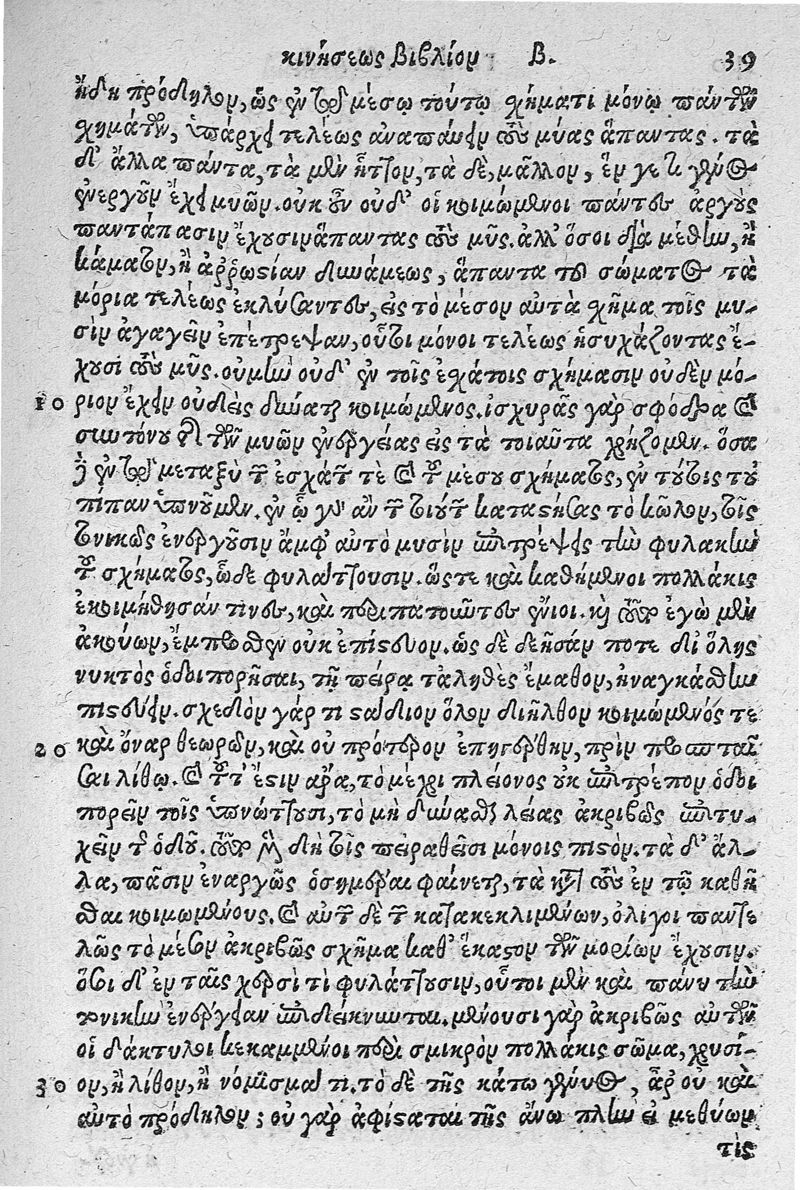 κινήσεως βιβλίον Β. 39
ἤδη πρόδηλον, ὡς ἐν τῷ μέσῳ τούτῳ σχήματι μόνῳ πάντων
σχημάτων, ὑπάρχει τελέως ἀναπαύειν τοὺς μύας ἅπαντας. τὰ
δ' ἄλλα πάντα, τὰ μὲν ἧττον, τὰ δὲ, μᾶλλον, ἕν γέ τι γένος
ἐνεργοῦν ἔχει μυῶν. οὐκ οὖν οὐδ' οἱ κοιμώμενοι πάντες ἀργοὺς
παντάπασιν ἔχουσιν ἅπαντας τοὺς μῦς. ἀλλ' ὅσοι διὰ μέθην, ἢ
κάματον, ἢ ἀῤῥωστίαν δυνάμεως, ἅπαντα τοῦ σώματος τὰ
μόρια τελέως ἐκλύσαντες, εἰς τὸ μέσον αὐτὰ σχῆμα τοῖς μυ-
σὶν ἀγαγεῖν ἐπέτρεψαν, οὗτοι μόνοι τελέως ἡσυχάζοντας ἔ-
χουσι τοὺς μῦς. οὐ μὴν οὐδ' ἐν τοῖς ἐσχάτοις σχήμασιν οὐδὲν μό-
10 ριον ἔχειν οὐδεὶς δύναται κοιμώμενος. ἰσχυρᾶς γὰρ σφόδρα καὶ
συντόνου τῶν μυῶν ἐνεργείας εἰς τὰ τοιαῦτα χρῄζομεν. ὅσα
δὲ ἐν τῷ μεταξὺ τῶν ἐσχάτων τε καὶ τοῦ μέσου σχήματος, ἐν τούτοις τοὐ-
πίπαν ὑπνοῦμεν. ἐν ᾧ γὰρ ἂν τῶν τοιούτων καταστήσας τὸ κῶλον, τοῖς
τονικῶς ἐνεργοῦσιν ἀμφ' αὐτὸ μυσὶν ἐπιτρέψῃς τὴν φυλακὴν
τοῦ σχήματος, ὧδε φυλάττουσιν. ὥστε καὶ καθήμενοι πολλάκις
ἐκοιμήθησάν τινες, καὶ περιπατοῦντες ἔνιοι. καὶ τοῦτο ἐγὼ μὲν
ἀκούων, ἔμπροσθεν οὐκ ἐπίστευον. ὡς δὲ δεῆσάν ποτε δι' ὅλης
νυκτὸς ὁδοιπορῆσαι, τῇ πείρᾳ τἀληθὲς ἔμαθον, ἠναγκάσθην
πιστεύειν. σχεδὸν γάρ τι στάδιον ὅλον διῆλθον κοιμώμενός τε
20 καὶ ὄναρ θεωρῶν, καὶ οὐ πρότερον ἐπηγέρθην, πρὶν προσπταῖ
σαι λίθῳ. καὶ τοῦτ' ἔστιν ἄρα, τὸ μέχρι πλείονος οὐκ ἐπιτρέπον ὁδοι
πορεῖν τοῖς ὑπνώττουσι, τὸ μὴ δύνασθαι λείας ἀκριβῶς ἐπιτυ-
χεῖν τῆς ὁδοῦ. τοῦτο μὲν δὴ τοῖς πειραθεῖσι μόνοις πιστὸν. τὰ δ' ἄλ-
λα, πᾶσιν ἐναργῶς ὁσημέραι φαίνεται, τὰ κατὰ τοὺς ἐν τῷ καθῆ
σθαι κοιμωμένους. καὶ αὐτῶν δὲ τῶν κατακεκλιμένων, ὀλίγοι παντε
λῶς τὸ μέσον ἀκριβῶς σχῆμα καθ' ἕκαστον τῶν μορίων ἔχουσιν.
ὅσοι δ' ἐν ταῖς χερσὶ τὶ φυλάττουσιν, οὗτοι μὲν καὶ πάνυ τὴν
τονικὴν ἐνέργειαν ἐπιδείκνυνται. μένουσι γὰρ ἀκριβῶς αὐτῶν
οἱ δάκτυλοι κεκαμμένοι περὶ σμικρὸν πολλάκις σῶμα, χρυσί-
30 ον, ἢ λίθον, ἢ νόμισμά τι. τὸ δὲ τῆς κάτω γένυος, ἆρ' οὐ καὶ
αὐτὸ πρόδηλον; οὐ γὰρ ἀφίσταται τῆς ἄνω πλὴν εἰ μεθύων
τὶς